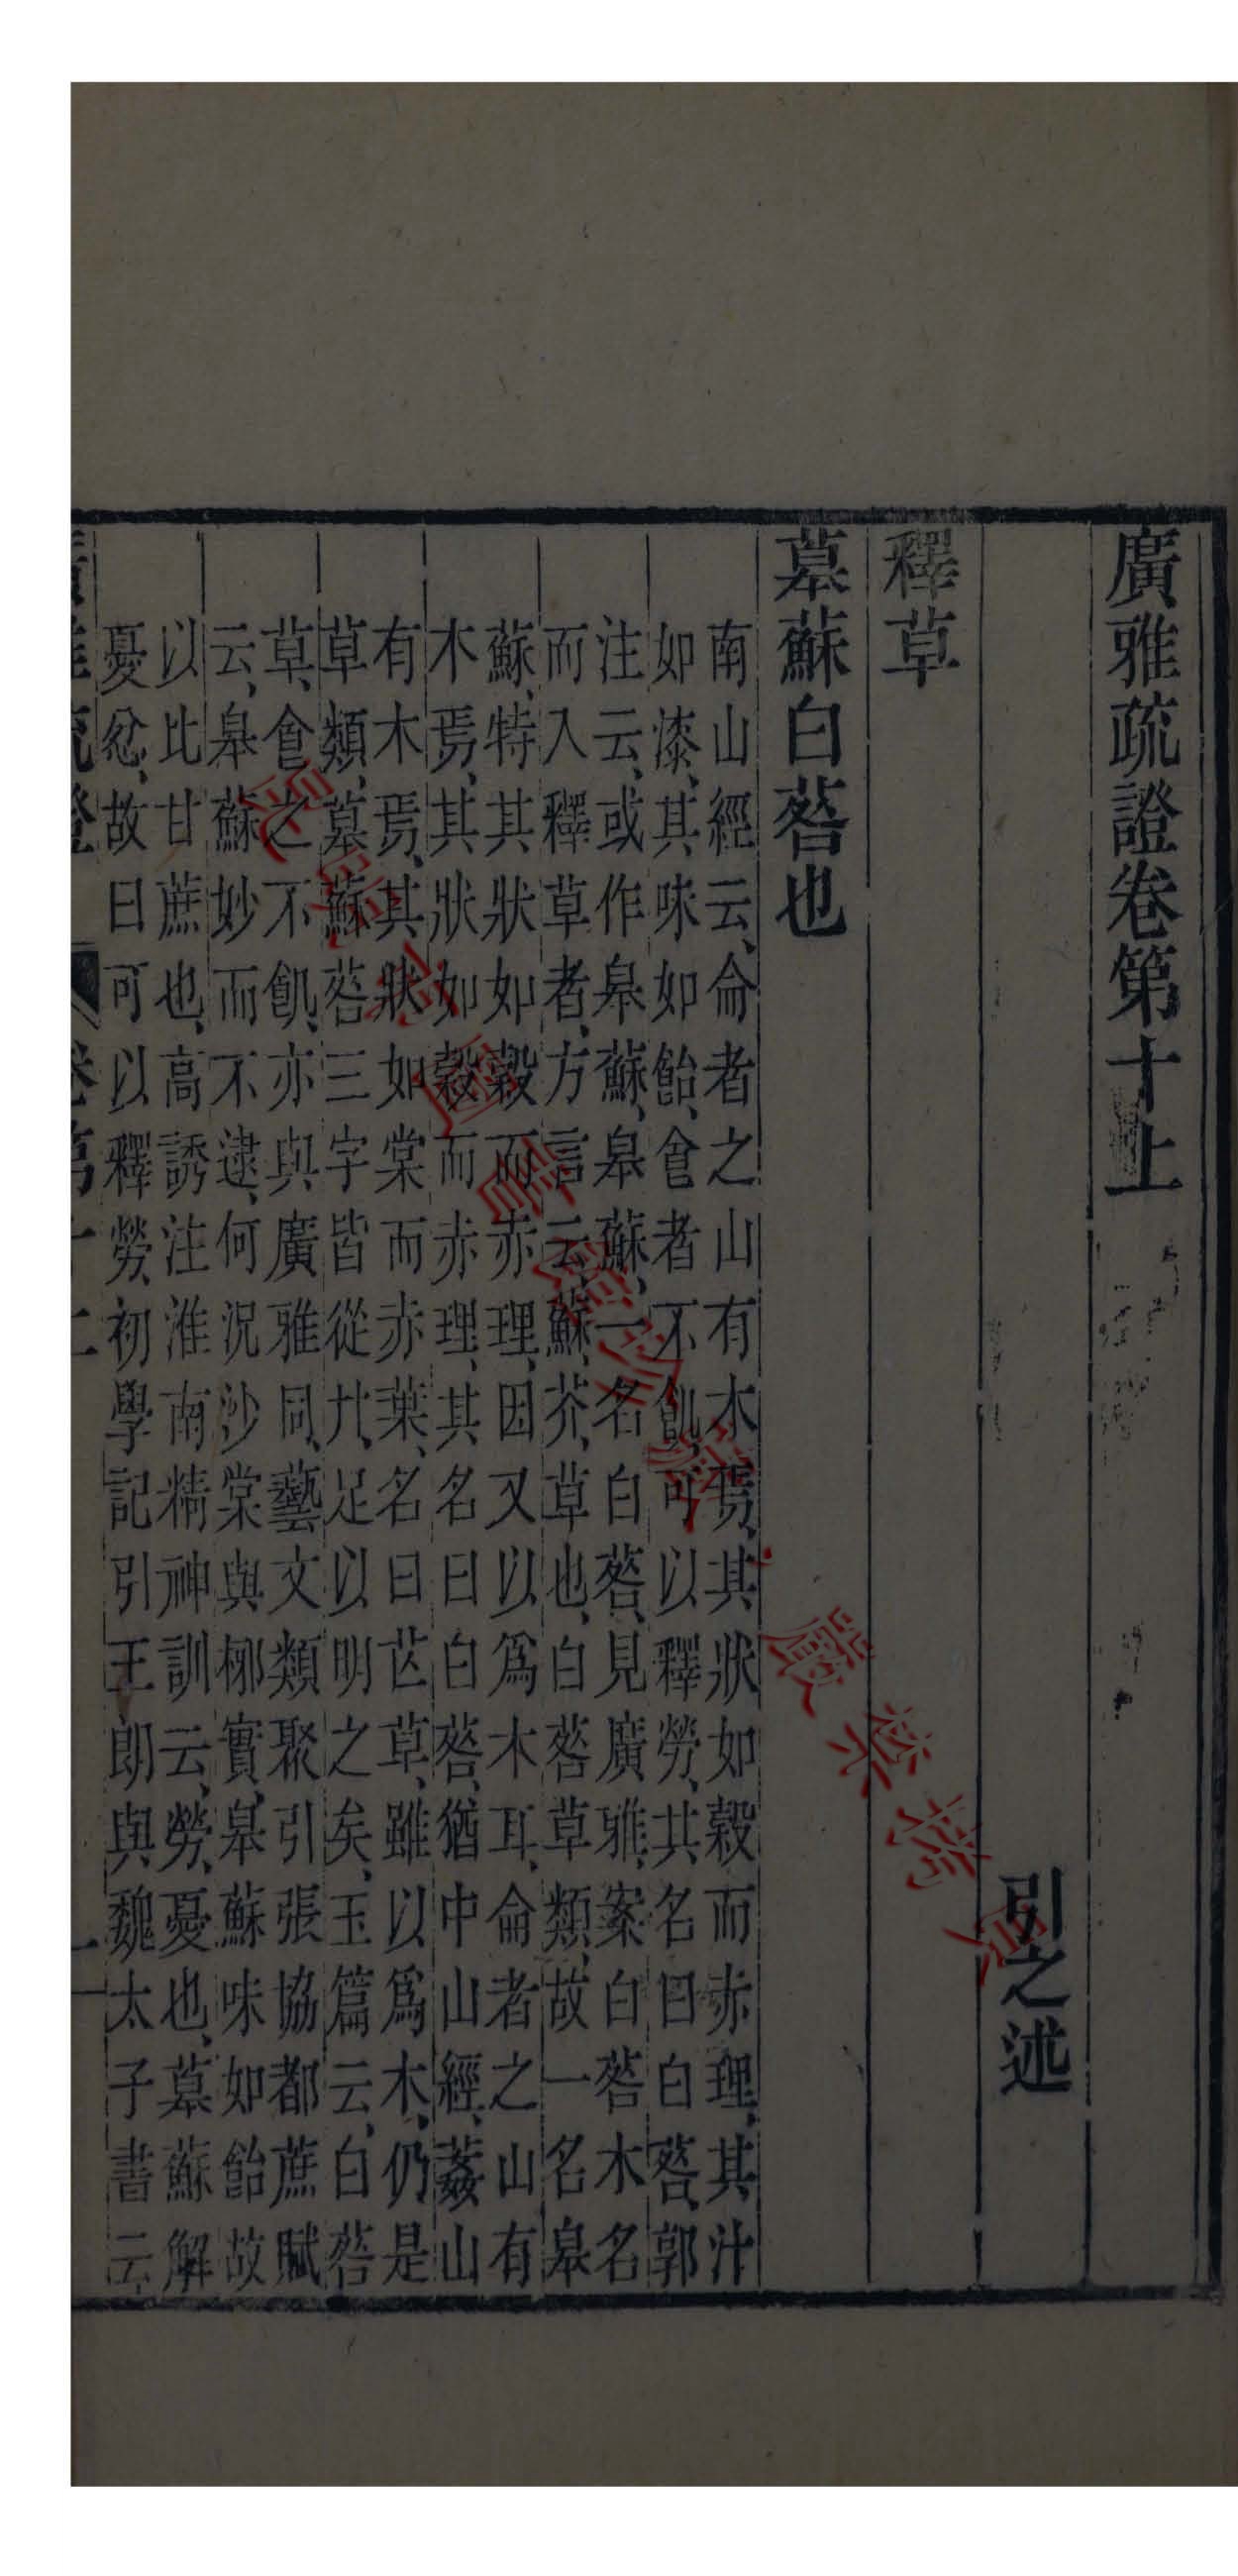 廣雅疏證卷第十上
引之述
釋草
䓴蘇白䓘也
南山經云侖者之山有木焉其狀如榖而赤理其汁
如漆其味如飴食者不飢可以釋勞其名曰白䓘郭
注云或作皋蘇皋蘇一名白䓘見廣雅案白䓘木名
而入釋草者方言云蘇芥草也白䓘草類故一名皋
蘇特其狀如榖而赤理因又以爲木耳侖者之山有
木焉其狀如榖而赤理其名曰白䓘猶中山經葌山
有木焉其狀如棠而赤葉名曰芒草雖以爲木仍是
草類䓴蘇䓘三字皆從艸足以明之矣玉篇云白䓘
草食之不飢亦與廣雅同藝文類聚引張協都蔗賦
云皋蘇妙而不逮何況沙棠與椰實皋蘇味如飴故
以比甘蔗也高誘注淮南精神訓云勞憂也䓴蘇解
憂忿故曰可以釋勞初學記引王朗與魏太子書云